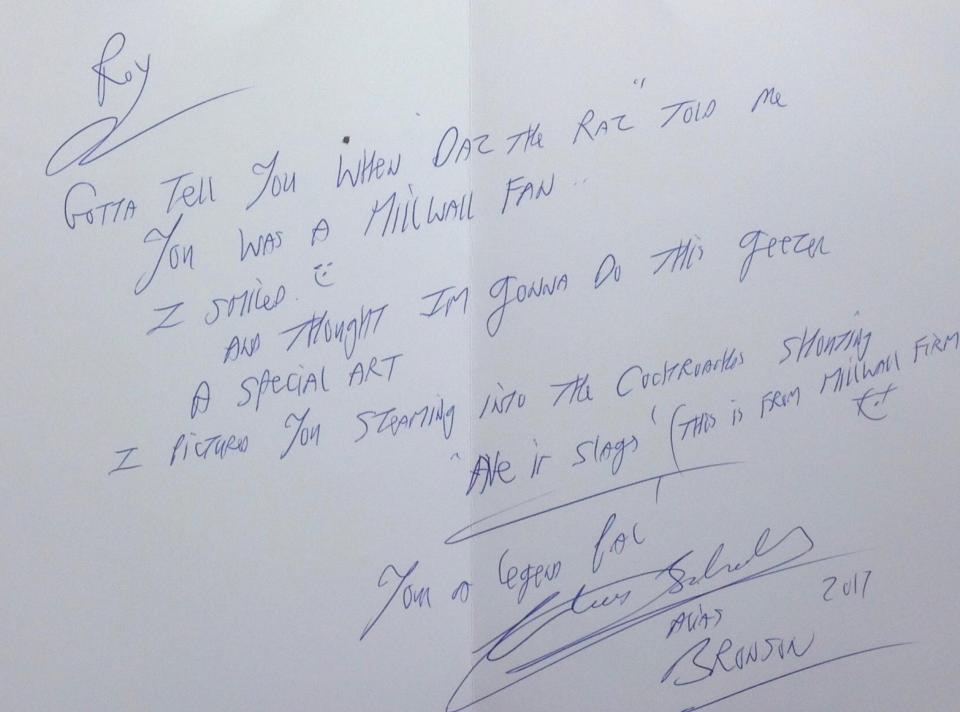 Roy
GOTTA TEll You WHEN "DAZ the RAZ" TOLD me
You WAS A MIllWAll FAN ..
I SMILED.
AND thought IM gonna Do this geezer
A SPECIAL ART
I PICTURED You STEAMING into the COCKROACHES SHOUTING
"AVE it Slags" (This is FROM MIllWALL FIRM
Your a legend PAL
ALIAS 2017
BRONSON